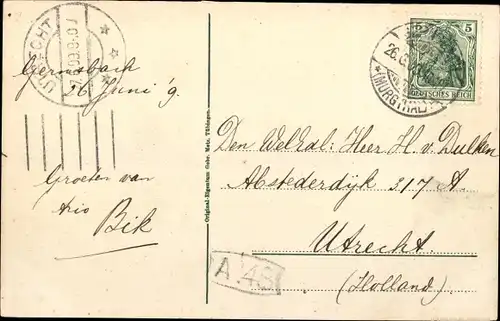 UTRECHT
Gernsbach
26 Juni '9.
Groeten van
trio
Bik
Original-Eigentum Gebr. Metz, Tübingen.
5
DEUTSCHES REICH
(MURGTHAL)
Den WelEdel: Heer H. v. Dulken
Abstederdijk 317 A.
Utrecht.
(Holland)
A 48